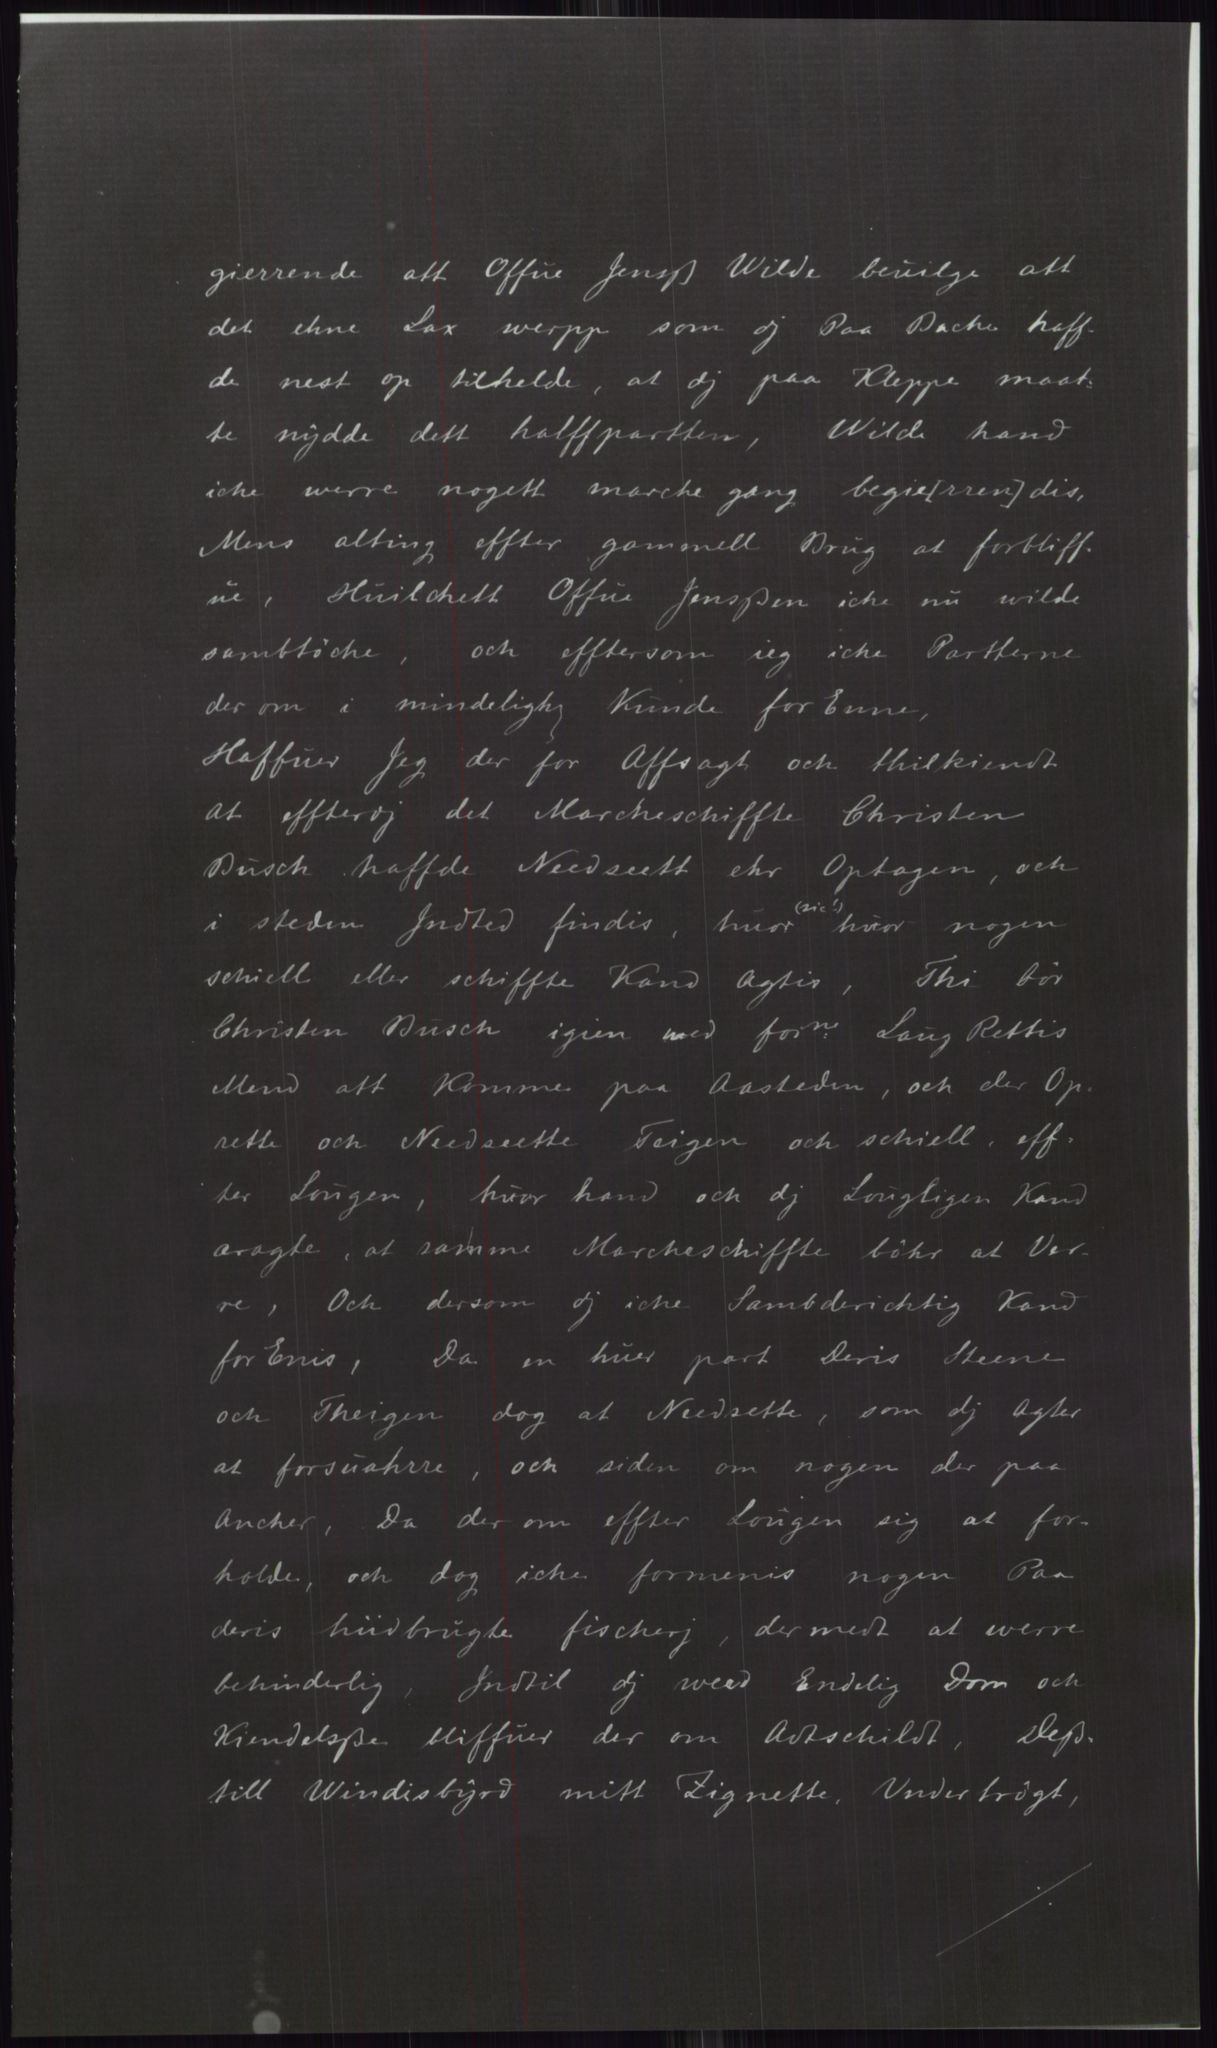 gierrende att Offue Jensß Wilde beuilge att
det ehne Lax werpp som dj Paa Backe haff-
de nest op tilhelde, at dj paa Kleppe maat-
te nÿdde dett halffpartten, Wilde hand
iche werre nogett marche gang begie[rren]dis,
Mens alting effter gammell Brug at forbliff-
ue, Huilchett Offue Jensßen iche nu wilde
sambtöche, och efftersom ieg iche Partterne
der om i mindelighz Kunde for Enne,
Haffuer Jeg der for Affsagt och thilkiendt
at effterdj det Marcheschiffte Christen
Busch haffde Needseett ehr Optagen, och
i steden Indted findis, huor (sic!) huor nogen
schiell eller schiffte Kand Agtis, Thi bör
Christen Busch igien med forne: Laug Rettis
Mend att Komme paa Aasteden, och der Op-
rette och Needseette Teigen och schiell, eff-
ter Lougen, huor hand och dj Lougligen Kand
eragte, at samme Marcheschiffte böhr at Ver-
re, Och dersom dj iche Sambderichtig Kand
for Enis, Da en huer part Deris Steene
och Theigen dog at Needsette, som dj Agter
at forsuahrre, och siden om nogen der paa
Ancher, Da der om effter Lougen sig at for-
holde, och dog iche formenis nogen Paa
deris hiidbrugte fischerj, dermedt at werre
behinderlig, Indtil dj weed Endelig Dom och
Kiendelsße bliffuer der om Adtschildt, Deß-
till Windisbÿrd mitt Zignette, Vndertrögt,
./.